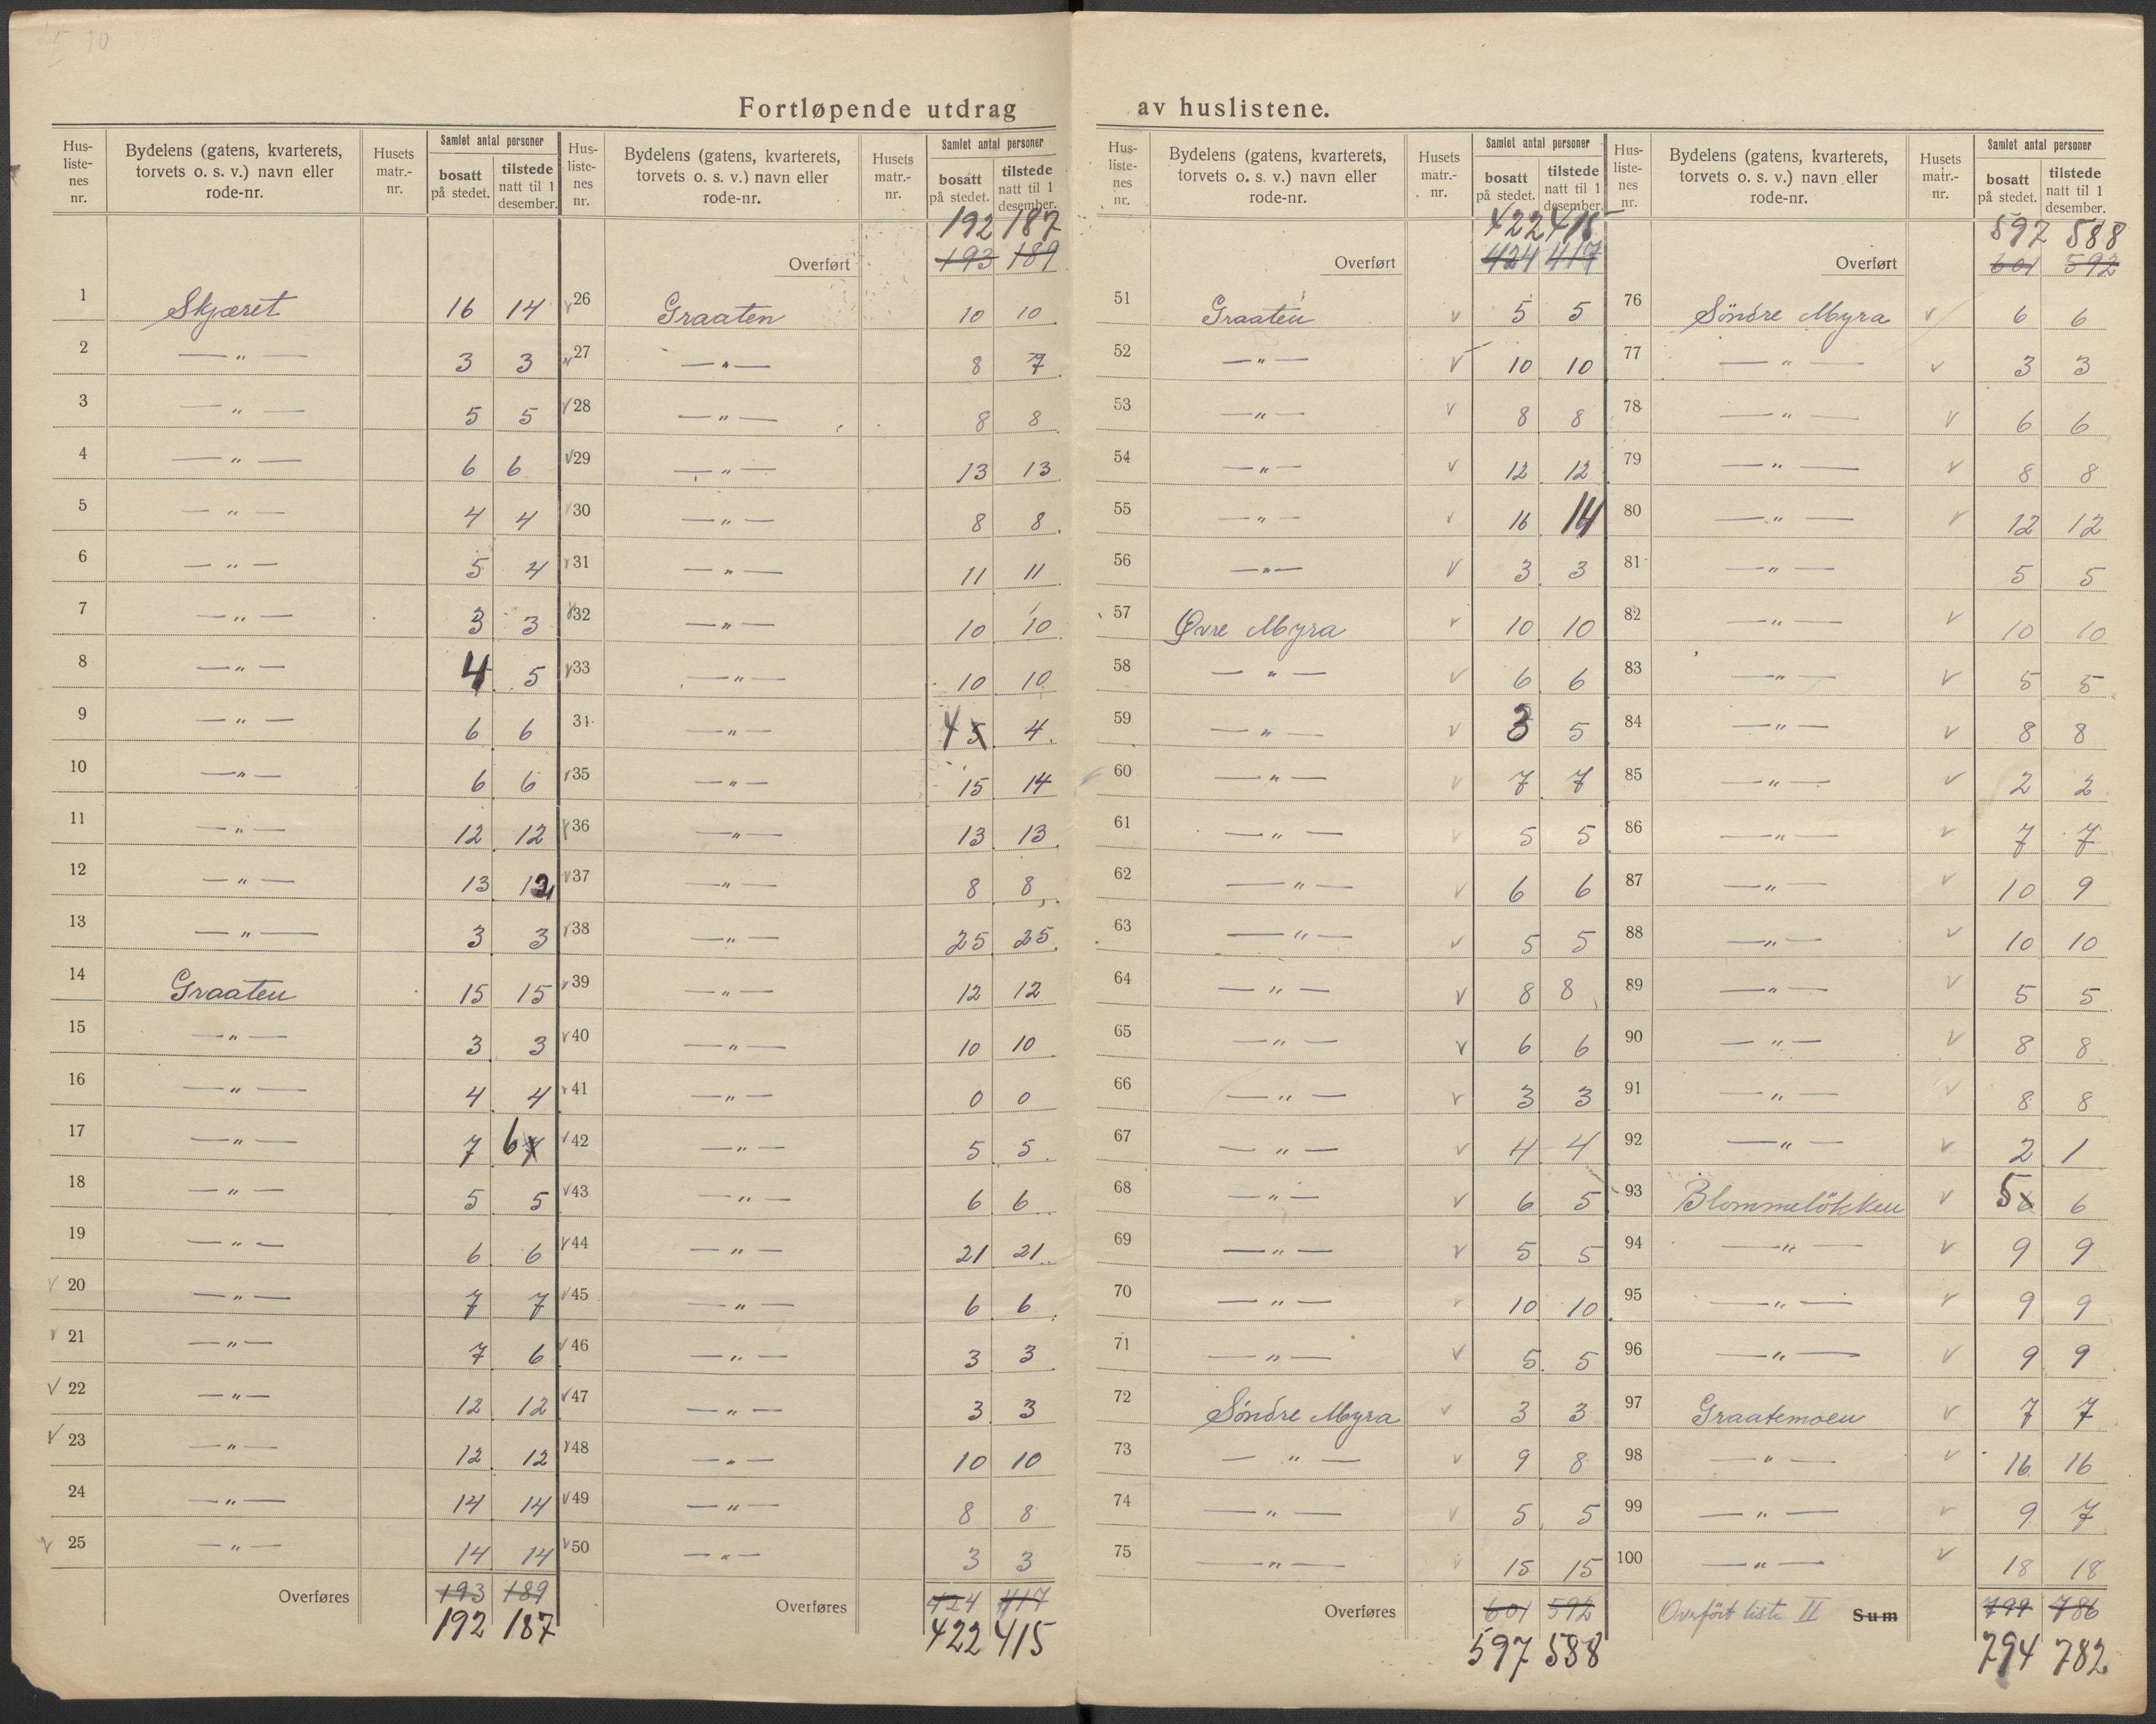 Fortløpende utdrag av huslistene.
Hus-listenes nr. | Bydelens (gatens, kvarterets, torvets o. s. v.) navn eller rode-nr. | Husets matr.-nr. | Samlet antal personer | bosatt på stedet. | tilstede natt til 1 desember.
1 Skjæret 16 14
2 —„— 3 3
3 —„— 5 5
4 —„— 6 6
5 —„— 4 4
6 —„— 5 4
7 —„— 3 3
8 —„— 4 5
9 —„— 6 6
10 —„— 6 6
11 —„— 12 12
12 —„— 13 12
13 —„— 3 3
14 Graaten 15 15
15 —„— 3 3
16 —„— 4 4
17 —„— 7 6
18 —„— 5 5
19 —„— 6 6
20 —„— 7 7
21 —„— 7 6
22 —„— 12 12
23 —„— 12 12
24 —„— 14 14
25 —„— 14 14
Overføres 193 189
192 187
Hus-listenes nr. | Bydelens (gatens, kvarterets, torvets o. s. v.) navn eller rode-nr. | Husets matr.-nr. | Samlet antal personer | bosatt på stedet. | tilstede natt til 1 desember.
192 187
Overført 193 189
26 Graaten 10 10
27 —„— 8 7
28 —„— 8 8
29 —„— 13 13
30 —„— 8 8
31 —„— 11 11
32 —„— 10 10
33 —„— 10 10
34 —„— 4 5 4
35 —„— 15 14
36 —„— 13 13
37 —„— 8 8
38 —„— 25 25
39 —„— 12 12
40 —„— 10 10
41 —„— 0 0
42 —„— 5 5
43 —„— 6 6
44 —„— 21 21
45 —„— 6 6
46 —„— 3 3
47 —„— 3 3
48 —„— 10 10
49 —„— 8 8
50 —„— 3 3
Overføres 424 417
422 415
Hus-listenes nr. | Bydelens (gatens, kvarterets, torvets o. s. v.) navn eller rode-nr. | Husets matr.-nr. | Samlet antal personer | bosatt på stedet. | tilstede natt til 1 desember.
422 415
Overført 424 417
51 Graaten v 5 5
52 —„— v 10 10
53 —„— v 8 8
54 —„— v 12 12
55 —„— v 16 14
56 —„— v 3 3
57 Øvre Myra v 10 10
58 —„— v 6 6
59 —„— v 3 5
60 —„— v 7 7
61 —„— v 5 5
62 —„— v 6 6
63 —„— v 5 5
64 —„— v 8 8
65 —„— v 6 6
66 —„— v 3 3
67 —„— v 4 4
68 —„— v 6 5
69 —„— v 5 5
70 —„— v 10 10
71 —„— v 5 5
72 Söndre Myra v 3 3
73 —„— v 9 8
74 —„— v 5 5
75 —„— v 15 15
Overføres 601 592
597 588
Hus-listenes nr. | Bydelens (gatens, kvarterets, torvets o. s. v.) navn eller rode-nr. | Husets matr.-nr. | Samlet antal personer | bosatt på stedet. | tilstede natt til 1 desember.
597 588
Overført 601 592
76 Söndre Myra v 6 6
77 —„— v 3 3
78 —„— v 6 6
79 —„— v 8 8
80 —„— v 12 12
81 —„— 5 5
82 —„— v 10 10
83 —„— v 5 5
84 —„— v 8 8
85 —„— v 2 2
86 —„— v 7 7
87 —„— v 10 9
88 —„— v 10 10
89 —„— v 5 5
90 —„— v 8 8
91 —„— v 8 8
92 —„— v 2 1
93 Blommelökken v 5 6
94 —„— v 9 9
95 —„— v 9 9
96 —„— v 9 9
97 Graatemoen v 7 7
98 —„— v 16 16
99 —„— v 9 7
100 —„— v 18 18
Overfört liste II Sum 799 786
794 782